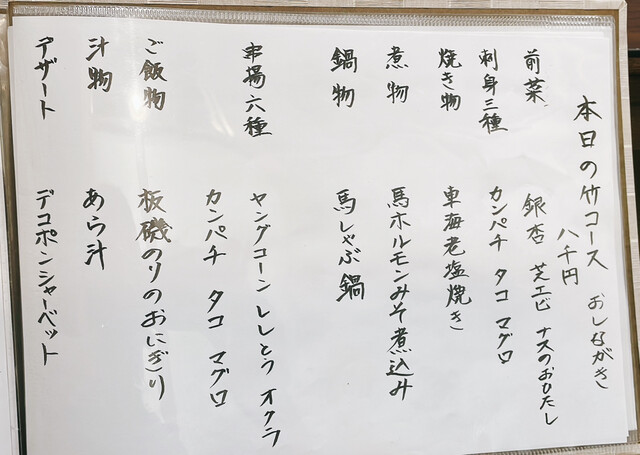 本日の竹コース おしながき
八千円
前菜 銀杏 芝エビ ナスのおひたし
刺身三種 カンパチ タコ マグロ
焼き物 車海老塩焼き
煮物 馬ホルモンみそ煮込み
鍋物 馬しゃぶ鍋
串揚六種 ヤングコーン ししとう オクラ
カンパチ タコ マグロ
ご飯物 板磯のりのおにぎり
汁物 あら汁
デザート デコポンシャーベット